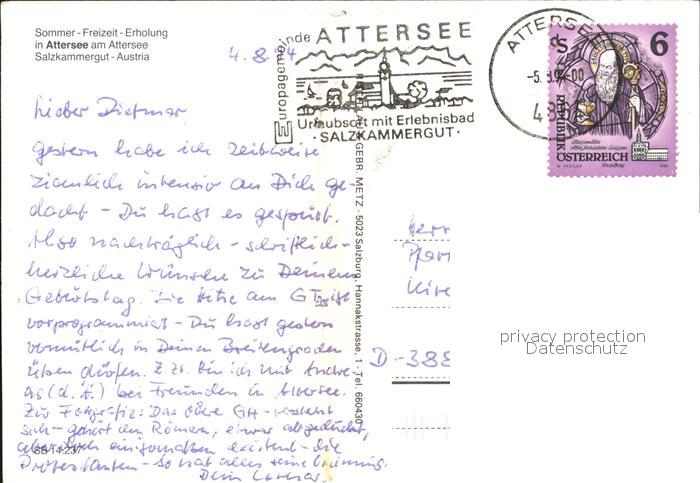 Sommer - Freizeit - Erholung
in Attersee am Attersee
Salzkammergut - Austria
4.8.94
Europagemeinde ATTERSEE
Urlaubsort mit Erlebnisbad
· SALZKAMMERGUT ·
ATTERSEE
-5. 8.94-00
6
REPUBLIK ÖSTERREICH
Lieber Dietmar,
gestern habe ich zeitweise
ziemlich intensiv an Dich ge-
dacht - Du hast es gespürt.
Also nachträglich - schriftlich -
herzliche Wünsche zu Deinem
Geburtstag. Die Hitze am GT ist
vorprogrammiert - Du hast gestern
vermutlich in Deinen Breitengraden
üben dürfen. Z.Zt. bin ich mit Andre-
as (d. Ä.) bei Freunden in Attersee.
Zur Fotografie: Das obere GH - versteht
sich - gehört den Römern, etwas abgeduckt,
aber doch einigermaßen existent - die
Protestanten - so hat alles seine Ordnung.
Dein
GEBR. METZ - 5023 Salzburg, Hannakstrasse 1 - Tel. 660430
Herr
Pfarr
Kirc
D-388
privacy protection
Datenschutz
SB 14.237